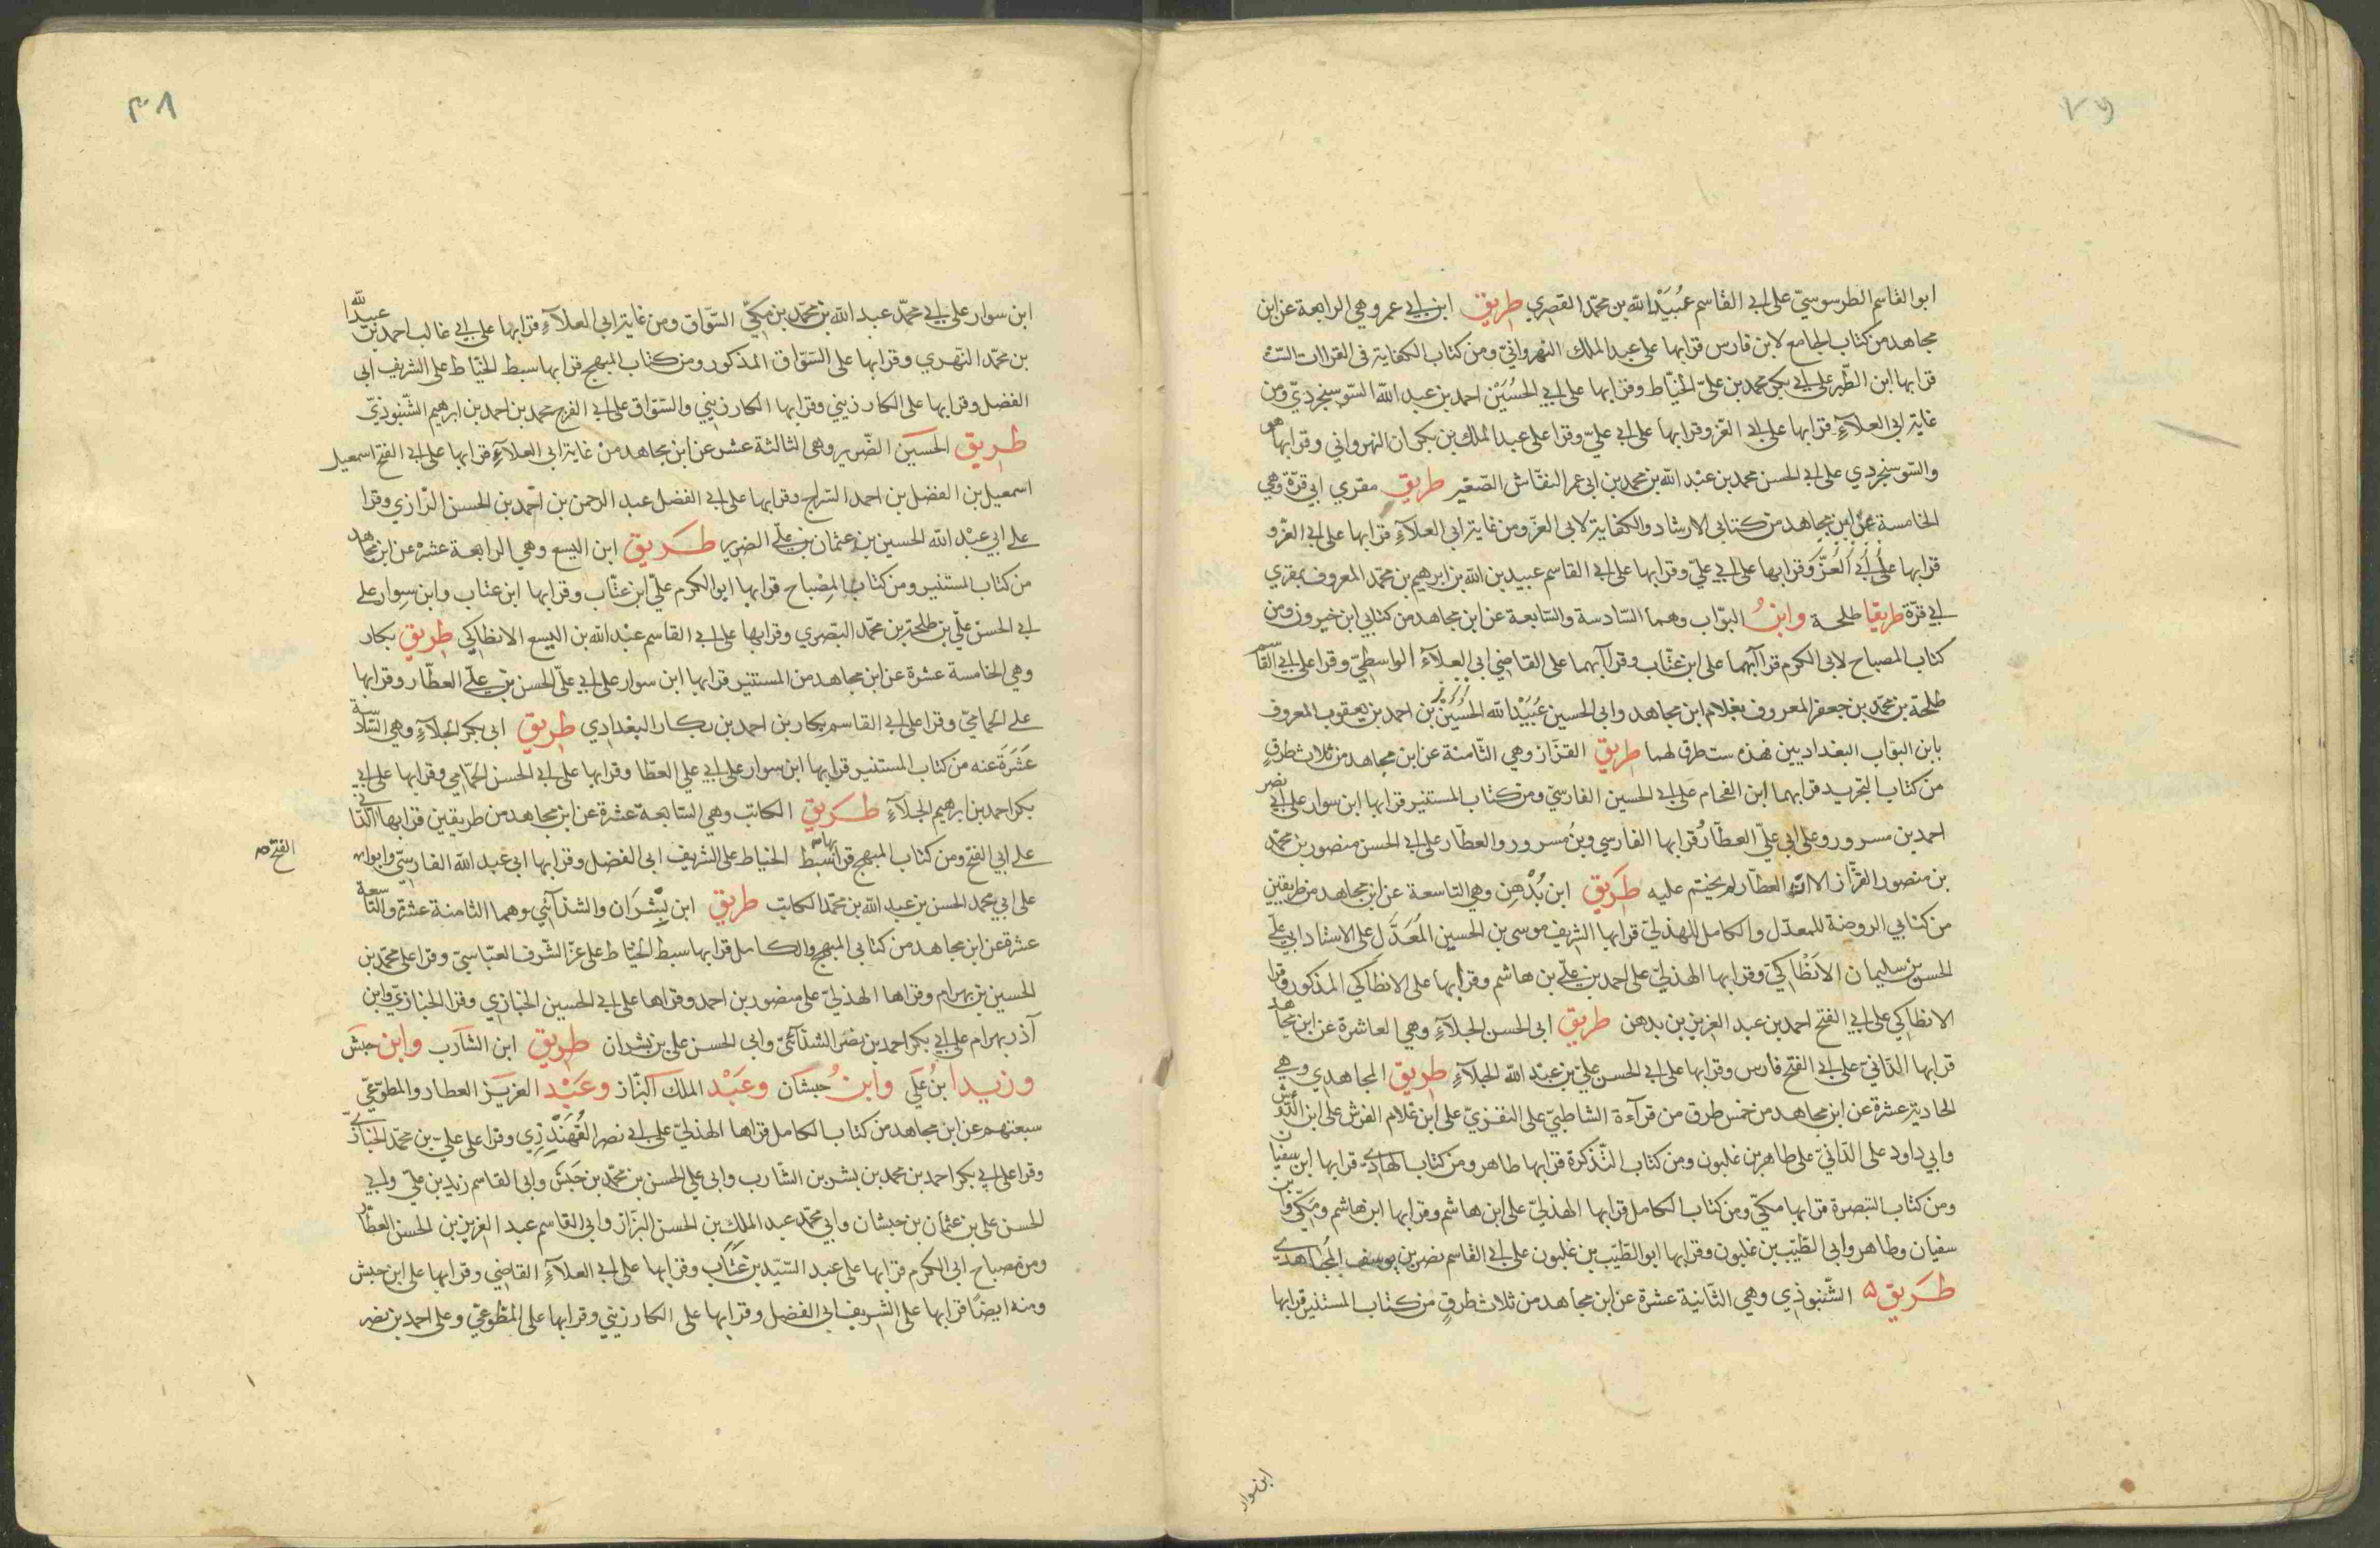 ابو القاسم الطرسوسيّ على ابي القاسم عُبَيْد الله بن محمّد القصري طريق ابن ابي عمر وهي الرابعة عن ابن
مجاهد من كتاب الجامع لابن فارس قرا بها على عبد الملك النهروانيّ ومن كتاب الكفاية في القراات الستّ
قرا بها ابن الطّبر على ابي بكر محمد بن عليّ الخيّاط وقرا بها على ابي الحُسَيْن احمد بن عبد الله السّوسنجرديّ ومن
غاية ابي العلآءِ قرا بها على ابي العّز وقرا بها على ابي عليّ وقرا على عبد الملك بن بكران النهرواني وقرا بها هو
والسّوسنجردي على ابي الحسن محمد بن عبْد الله بن محمد بن ابي عمر النقّاش الصّغير طريق مقري ابي قرّة وهي
الخامسة عن ابن مجاهد من كتابي الارشاد والكفاية لابي العزّ ومن غاية ابي العلآءِ قرا بها على ابي العّز و
قرا بها على ابي العّز وقرا بها على ابي عليّ وقرا بها على ابي القاسم عبيد بن الله بن ابرهيم بن محمّد المعروف بمقري
ابي قرّة طريقا طلحة وابنُ البوّاب وهما السّادسة والسّابعة عن ابن مجاهد من كتابي ابن خيرون ومن
كتاب المصباح لابي الكرم قراآبهما على ابن عتّاب وقراآبهما على القاضي ابي العلآءِ الواسطيّ وقرا على ابي القاسم
طلحة بن محمّد بن جعفر المعروف بغلام ابن مجاهد وابي الحسين عُبَيْد الله الحُسَيْن بن احمد بن يعقوب المعروف
بابن البوّاب البغداديين فهذه ست طرق لهما طريق القزّاز وهي الثّامنة عن ابن مجاهد من ثلاث طرقٍ
من كتاب التجريد قرا بهما ابن الفحام على ابي الحسين الفارسيّ ومن كتاب المستنير قرا بها ابن سوار على ابي نصر
احمد بن مسرور وعلى ابي عليّ العطّار قرا بها الفارسي وبن مسرور والعطّار على ابي الحسن منصور بن محمّد
بن منصور القزّاز الا انّ العطّار لم يختم عليه طَريق ابن بُدْهِن وهي التاسعة عن ابن مجاهد من طريقين
من كتابي الروضة للمعدّل والكامل للهذليّ قرا بها الشريف موسى بن الحسين المُعَدَّل على الاستاد ابي علي
الحسن بن سليمان الاَنْطاكيّ وقرا بها الهذليّ على احمد بن علي بن هاشم وقرا بها على الانطاكي المذكور وقرا
الانطاكي على ابي الفتح احمد بن عبد العزيز بن بدهن طريق ابي الحسن الجلآءِ وهي العاشرة عن ابن مجاهد
قرا بها الدّانيّ على ابي الفتح فارس وقرا بها على ابي الحسن عليّ بن عبْد الله الجلآءِ طريق المجاهدي وهي
الحادية عشرة عن ابن مجاهد من خمس طرق من قرآءة الشاطبيّ على النفزيّ على ابن غلام الفرش على ابن الدّوش
وابي داود على الدّانيّ على طاهر بن غلبون ومن كتاب التّذكرة قرا بها طاهر ومن كتاب الهادي قرا بها ابن سفيان
ومن كتاب التبصرة قرا بها مكيّ ومن كتاب الكامل قرا بها الهذليّ على ابن هاشم وقرا بها ابن هاشم ومكيّ وابن
سفيان وطاهر وابي الطّيّب بن غلبون وقرا بها ابو الطيّب بن غلبون على ابي القاسم نصر بن يوسف المجاهدي
طَريق الشّنبوذي وهي الثّانية عشرة عن ابن مجاهد من ثلاث طرقٍ من كتاب المستنير قرا بها
ابن سوار
٣٨
ابن سوار على ابي محمّد عبد الله بن محمّد بن مكيّ السّواق ومن غاية ابي العلآءِ قرا بها على ابي غالب احمد بن عبيد الله
بن محمّد النّهري وقرا بها على السّوّاق المذكور ومن كتاب المبهج قرا بها سبط الخيّاط على الشريف ابي
الفضل وقرا بها على الكارزيني وقرا بها الكارزيني والسّوّاق على ابي الفرج محمد بن احمد بن ابرهيم الشّنبوذيّ
طريق الحسَين الضّرير وهي الثالثة عشر عن ابن مجاهد منْ غاية ابي العلآءِ قرا بها على ابي الفتح اسمعيل
اسمعيل بن الفضل بن احمد السّراج وقرا بها على ابي الفضل عبد الرحمن بن احمد بن الحسن الرّازي وقرا
على ابي عبْد الله الحسين بن عثمان بن علي الضرير طَريق ابن اليسع وهي الرابعة عشرْ عن ابن مجاهد
من كتاب المستنير ومن كتاب المِصْباح قرا بها ابو الكرم عليّ ابن عتّاب وقرا بها ابن عتاب وابن سِوار على
ابي الحسن عليّ بن طلحة بن محمّد البَصري وقرا بها على ابي القاسم عبْد الله بن اليسع الانطاكي طريق بكار
وهي الخامسة عشرة عن ابن مجاهد من المستنير قرا بها ابن سوار على ابي عليّ الحسن بن عليّ العطّار وقرا بها
على الحماميّ وقرا على ابي القاسم بكار بن احمد بن بكار البغدادي طريق ابي بكر الجلآءِ وهي السّادسة
عَشرَةَ عنه من كتاب المستنير قرا بها ابن سوار على ابي علي العطّا وقرا بها على ابي الحسن الحمّامي وقرا بها على ابي
بكر احمد بن ابرهيم الجلآءِ طَريق الكاتب وهي السّابعة عشرة عن ابن مجاهد من طريقين قرا بها الدّاني
على ابي الفتح ومن كتاب المبهج قرا بها سبط الخياط على الشريف ابي الفضل وقرا بها ابي عبد الله الفارسيّ وابو
الفتح صح
على ابي محمد الحسن بن عبد الله بن محمّد الكاتب طريق ابن بِشْرَان والشذآئي وهما الثامنة عشرة والتّاسعة
عشرة عن ابن مجاهد من كتابي المبهج والكامل قرا بها سبط الخيّاط على عزّ الشّرف العبّاسيّ وقرا على محمّد بن
الحسين بن بهرام وقراها الهذليّ على منصور بن احمد وقراها على ابي الحسين الخبازي وقرا الخبازيّ وابن
آذر بهرام على ابي بكر احمد بن نصَر الشذآئيّ وابي الحسن علي بن بشران طريق ابن الشّارب وابن حبشَ
وزيد ابنُ عَلي وابنُ حبشان وعَبْد الملك البّزاز وعَبْد العزيز العطار والمطوّعيّ
سبعتهم عن ابن مجاهد من كتاب الكامل قراها الهذليّ على ابي نصر القُهَنْدِزِي وقرا على علي بن محمّد الخبازيّ
وقرا على ابي بكر احمد بن محمد بن بشر بن الشّارب وابي علي الحسن بن محمّد بن حَبَش وابي القاسم زيد بن علي وابي
الحسن علي بن عثمان بن حبشان وابي محمّد عبد الملِك بن الحسن البزّاز وابي القاسم عبد العزيز بن الحسن العطّار
ومن مصباح ابي الكرم قرا بها على عبد السّيّد بن عَتّاب وقرا بها على ابي العلآءِ القاضي وقرا بها على ابن حبش
ومنه ايضًا قرا بها على الشريف ابي الفضل وقرا بها على الكارزيني وقرا بها على المطّوعيّ وعلى احمد بن نصر